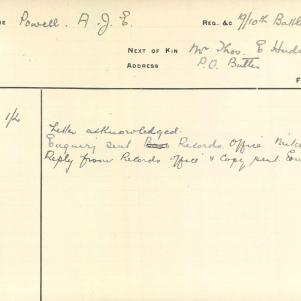 ME Powell. A. J. E. REG. &C 10/10th Battl
NEXT OF KIN Mr Thos. E Huds
ADDRESS P.O. Buttes
F
1/2 Letter acknowledged.
Enquiry sent Records Office
Reply from Records Office & Copy sent